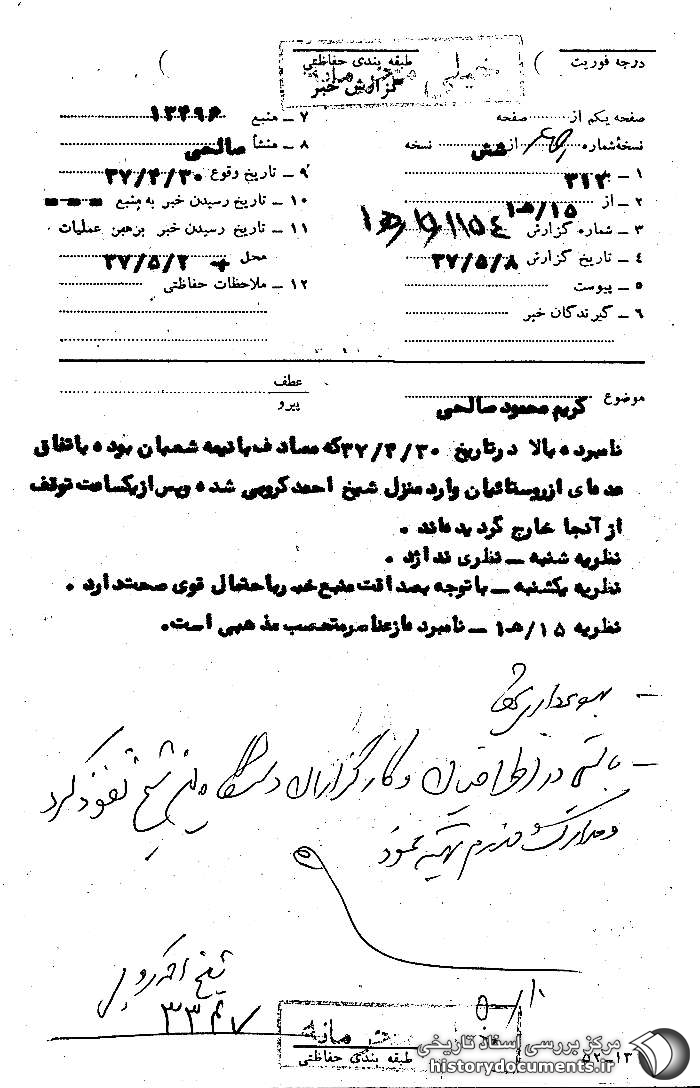 درجه فوریت
طبقه بندی حفاظتی
خیلی محرمانه
گزارش خبر
صفحه یکم از صفحه
نسخهٔ شماره از شش نسخه
۱ ــ ۳۱۲
۲ ــ از ۱۵/ه‍۱
۳ ــ شماره گزارش
۴ ــ تاریخ گزارش ۳۷/۵/۸
۵ ــ پیوست
۶ ــ گیرندگان خبر
۷ ــ منبع ۱۳۴۹۶
۸ ــ منشأ صالحی
۹ ــ تاریخ وقوع ۳۷/۴/۳۰
۱۰ ــ تاریخ رسیدن خبر به منبع ـ ـ ـ
۱۱ ــ تاریخ رسیدن خبر برهبر عملیات
محل ۳۷/۵/۲
۱۲ ــ ملاحظات حفاظتی
موضوع کریم محمود صالحی
عطف
پیرو
نامبرده بالا در تاریخ ۳۷/۴/۳۰ که مصادف با نیمه شعبان بوده با تفاق
عده ای از روستائیان وارد منزل شیخ احمد کروبی شده و پس از یکساعت توقف
از آنجا خارج گردیده اند .
نظریه شنبه ــ نظری ندارد .
نظریه یکشنبه ــ با توجه بصداقت منبع خبر باحتمال قوی صحت دارد .
نظریه ۱۵/ه‍۱ ــ نامبرده از عناصر متعصب مذهبی است .
ــ بایستی در اطرافیان و کارگزاران دستگاه این شیخ نفوذ کرد
و مدارک لازم تهیه نمود
شیخ احمد کروبی
۳۳۴۷
۵/۱۰
طبقه بندی حفاظتی
۱۳ــ۵۲
مرکز بررسی اسناد تاریخی
historydocuments.ir